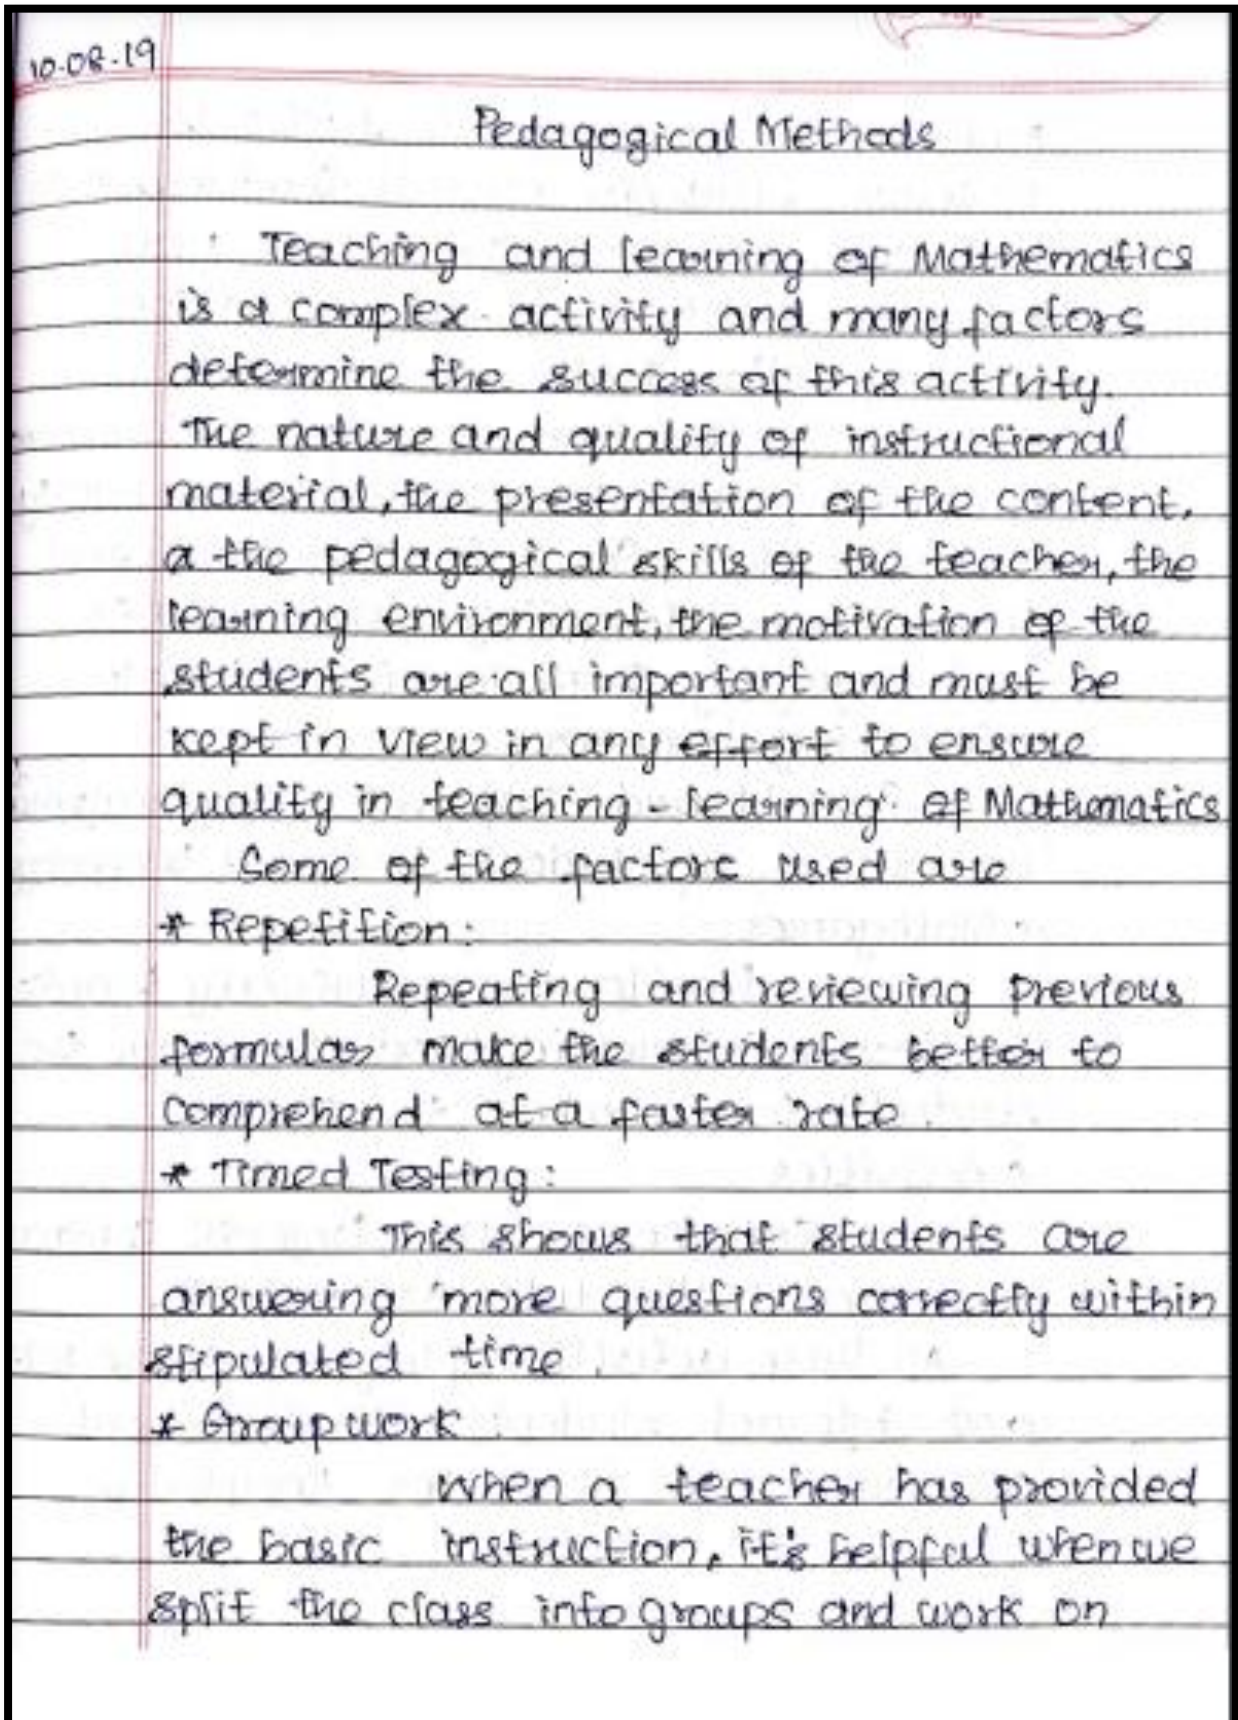 10.08.19
Pedagogical Methods
Teaching and learning of Mathematics
is a complex activity and many factors
determine the success of this activity.
The nature and quality of instructional
material, the presentation of the content,
a the pedagogical skills of the teacher, the
learning environment, the motivation of the
students are all important and must be
kept in view in any effort to ensure
quality in teaching - learning of Mathematics
Some of the factors used are
* Repetition:
Repeating and reviewing previous
formulas make the students better to
comprehend at a faster rate.
* Timed Testing:
This shows that students are
answering more questions correctly within
stipulated time.
* Group work
When a teacher has provided
the basic instruction, it's helpful when we
split the class into groups and work on